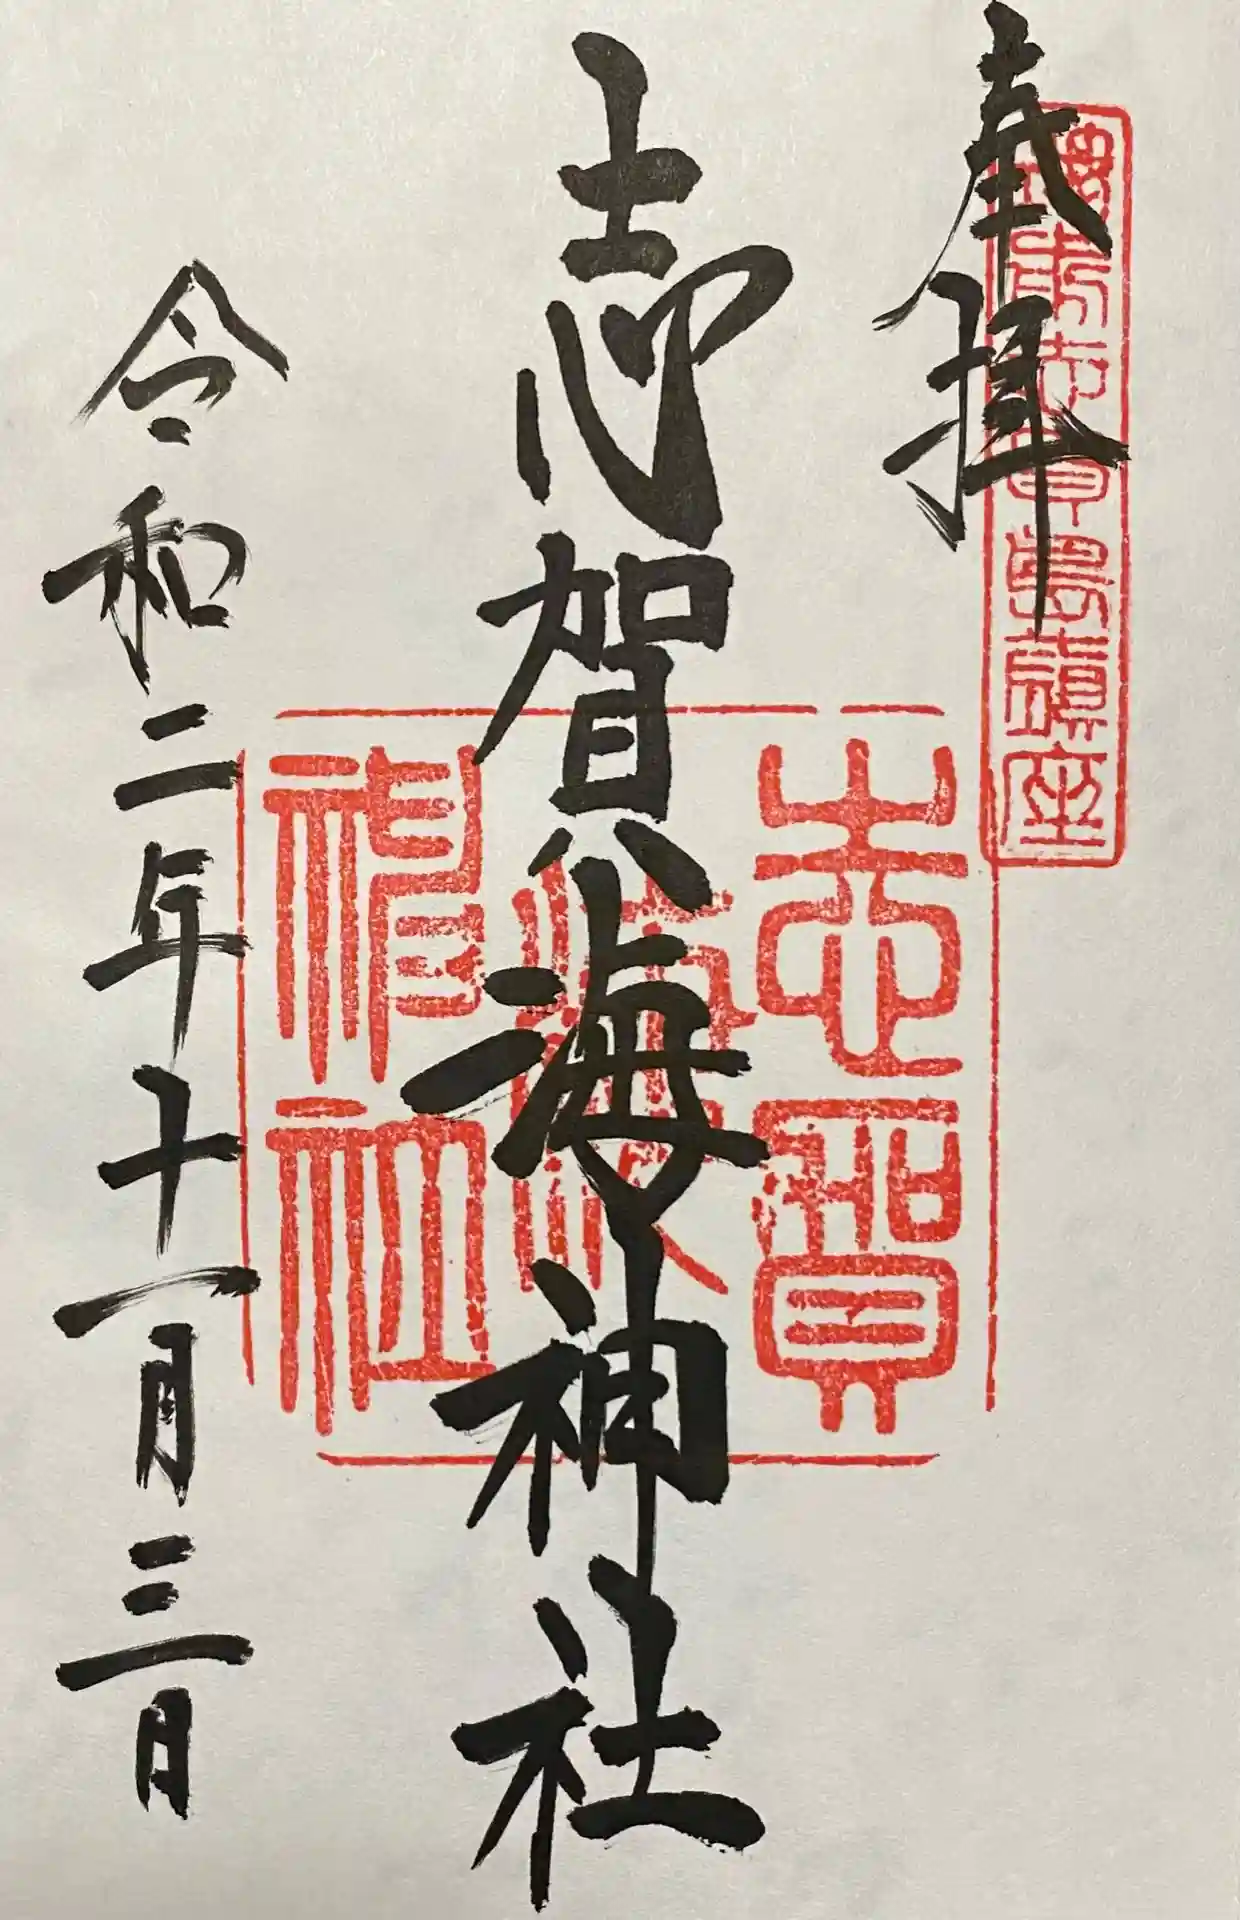 奉拝
筑前志賀島鎮座
志賀海神社
志賀
海
神社
令和二年十一月三日